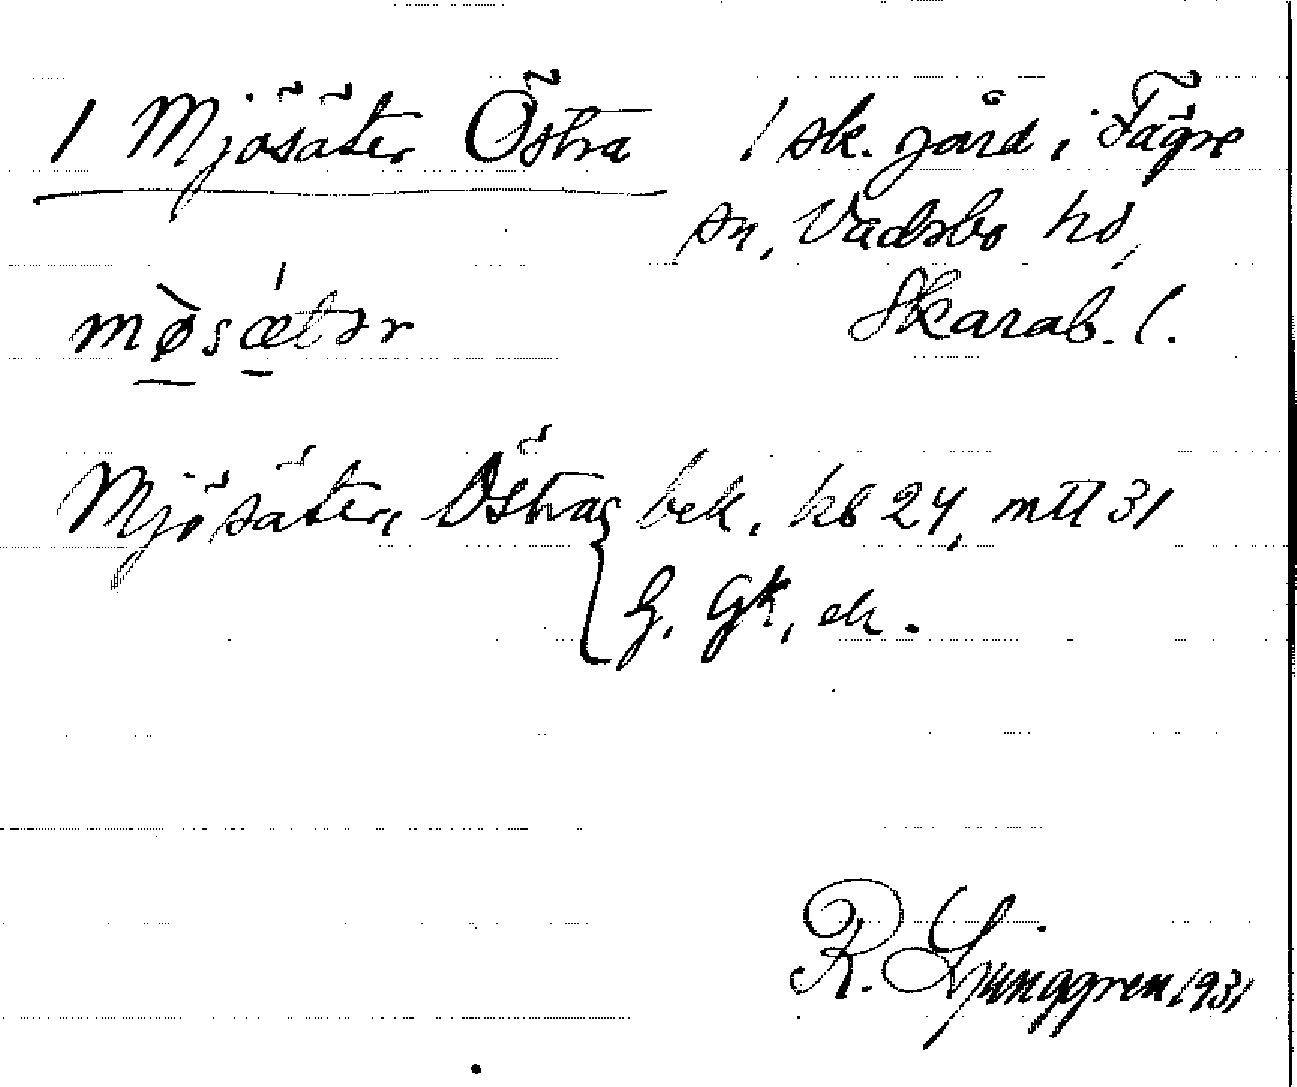 1 Mjösäter Östra 1 sk. gård i Fägre
sn, Vadsbo hd,
møsætər Skarab. l.
Mjösäter, Östra, bek. kb 24, mtl 31
G. Gk, ek.
R. Ljunggren 1931